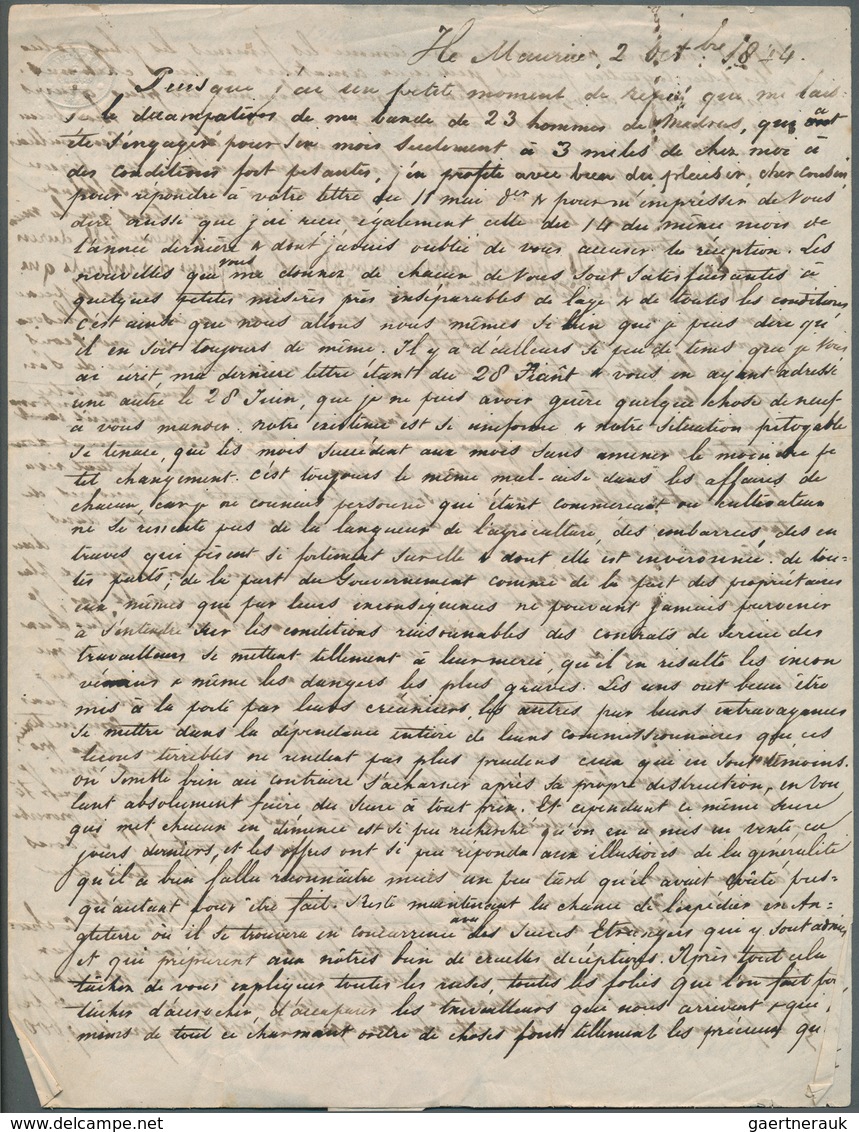 Ile Maurice, 2 Octbre 1844.
Puisque j'ai un petit moment de répit que me lais-
se la décampation de ma bande de 23 hommes de Madras, qui a
été s'engager pour un mois seulement à 3 miles de chez moi à
des conditions fort pesantes, j'en profite avec bien du plaisir, cher cousin,
pour répondre à votre lettre du 11 mai dr & pour m'empresser de vous
dire aussi que j'ai reçu également celle du 14 du même mois de
l'année dernière & dont j'avais oublié de vous accuser la réception. Les
nouvelles que vous me donnez de chacun de vous sont satisfaisantes à
quelques petites misères près inséparables de l'age & de toutes les conditions
c'est ainsi que nous allons nous mêmes si bien que je puis dire qu'
il en soit toujours de même. Il y a d'ailleurs si peu de tems que je vous
ai écrit ma dernière lettre étant du 28 Août & vous en ayant adressé
une autre le 28 Juin, que je ne puis avoir guère quelque chose de neuf
à vous mander. notre existence est si uniforme & notre situation pitoyable
si tenace, que les mois succèdent aux mois sans amener le moindre pe
tit changement. c'est toujours le même mal-aise dans les affaires de
chacun, car je ne connais personne qui étant commerçant ou cultivateur
ne se ressente pas de la langueur de l'agriculture, des embarras, des en
traves qui pèsent si fortement sur elle & dont elle est environnée. de tou-
tes parts; de la part du Gouvernement comme de la part des propriétaires
eux-mêmes qui par leurs inconséquences ne pouvant jamais parvenir
à s'entendre sur les conditions raisonnables des contrats de service des
travailleurs se mettent tellement à leur merci, qu'il en résulte les incon
véniens & même les dangers les plus graves. Les uns ont beau être
mis à la porte par leurs créanciers, les autres par leurs extravagances
se mettre dans la dépendance entière de leurs commissionnaires que ces
leçons terribles ne rendent pas plus prudens ceux qui en sont témoins.
on semble bien au contraire s'acharner après sa propre destruction, en vou
lant absolument faire du sucre à tout prix. Et cependant ce même sucre
qui met chacun en démence est si peu recherché qu'on en a mis en vente ces
jours derniers, et les offres ont si peu répondu aux illusions de la généralité
qu'il a bien fallu reconnaitre mais un peu tard qu'il avait coûté pres-
qu'autant pour être fait. Reste maintenant la chance de l'expédier en An-
gleterre où il se trouvera en concurrence avec des Sucres Etrangers qui y sont admis
et qui préparent aux nôtres bien de cruelles déceptions. Après tout cela
tâcher de vous expliquer toutes les ruses, toutes les folies que l'on fait pour
tâcher d'accrocher, d'accaparer les travailleurs qui nous arrivent & que
mines de tout ce charmant ordre de choses font tellement les précieux qu'
gaertnerauk@